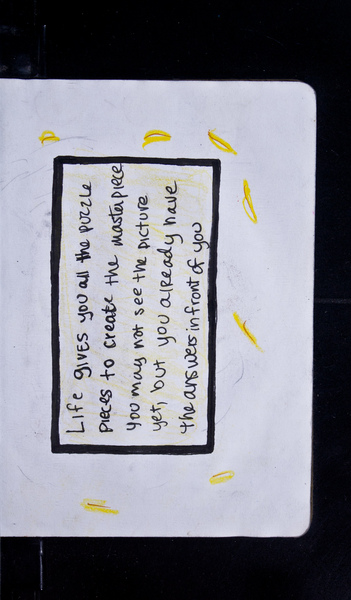 Life gives you all the puzzle
pieces to create the masterpiece
you may not see the picture
yet, but you already have
the answers in front of you